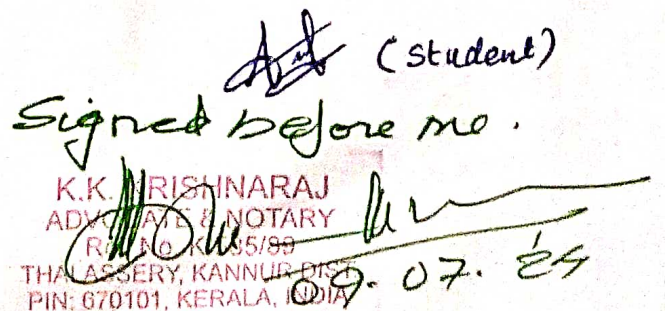 (Student)
Signed before me.
K.K. KRISHNARAJ
ADVOCATE & NOTARY
THALASSERY, KANNUR DIST
PIN: 670101, KERALA, INDIA
09.07.24